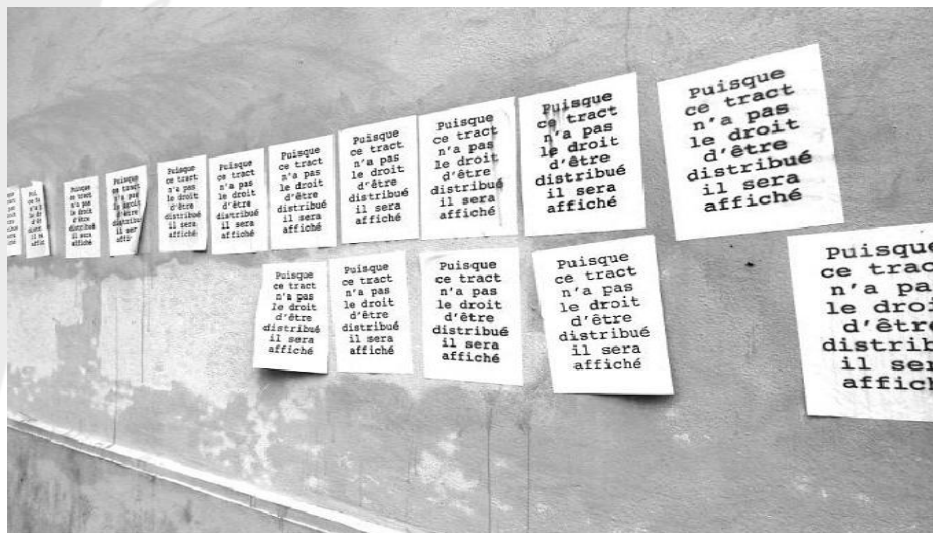 Puisque
ce tract
n'a pas
le droit
d'être
distribué
il sera
affiché
Puisque
ce tract
n'a pas
le droit
d'être
distribu
il ser
affi
Puisque
ce tract
n'a pas
le droit
d'être
distribué
il sera
affiché
Puisque
ce tract
n'a pas
le droit
d'être
distribué
il sera
affiché
Puisque
ce tract
n'a pas
le droit
d'être
distribué
il sera
affiché
Puisque
ce tract
n'a pas
le droit
d'être
distribué
il sera
affiché
Puisque
ce tract
n'a pas
le droit
d'être
distribué
il sera
affiché
Puisque
ce tract
n'a pas
le droit
d'être
distribué
il sera
affiché
Puisque
ce tract
n'a pas
le droit
d'être
distribué
il sera
affiché
Puisque
ce tract
n'a pas
le droit
d'être
distribué
il sera
affiché
Puisque
ce tract
n'a pas
le droit
d'être
distribué
il sera
affiché
Puisque
ce tract
n'a pas
le droit
d'être
distribué
il sera
affiché
Puisque
ce tract
n'a pas
le droit
d'être
distribué
il sera
affiché
Puisque
ce trac
n'a pa
le droi
d'être
distrib
il ser
affich